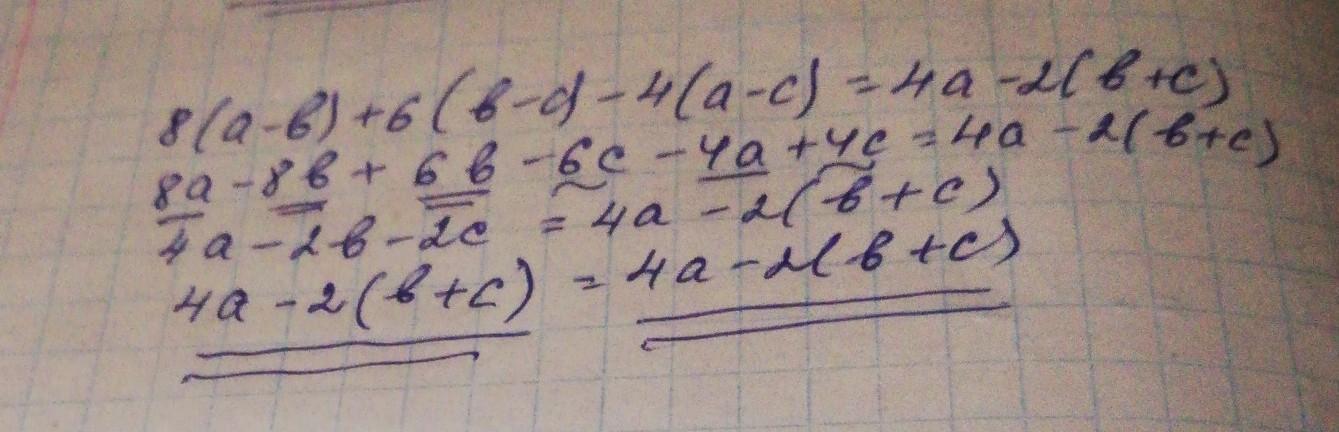 8(a-в)+6(в-c)-4(a-c)=4a-2(в+c)
8a-8в+6в-6c-4a+4c=4a-2(в+c)
4a-2в-2c=4a-2(в+c)
4a-2(в+c)=4a-2(в+c)